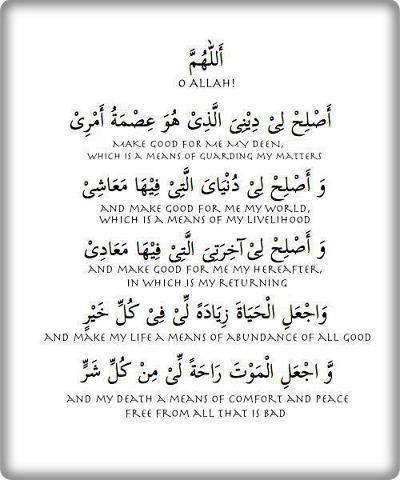 أَللّٰهُمَّ
O ALLAH!
أَصْلِحْ لِیْ دِیْنِیَ الَّذِیْ هُوَ عِصْمَةُ أَمْرِیْ
MAKE GOOD FOR ME MY DEEN,
WHICH IS A MEANS OF GUARDING MY MATTERS
وَ أَصْلِحْ لِیْ دُنْیَایَ الَّتِیْ فِیْهَا مَعَاشِیْ
AND MAKE GOOD FOR ME MY WORLD,
WHICH IS A MEANS OF MY LIVELIHOOD
وَ أَصْلِحْ لِیْ آخِرَتِیَ الَّتِیْ فِیْهَا مَعَادِیْ
AND MAKE GOOD FOR ME MY HEREAFTER,
IN WHICH IS MY RETURNING
وَاجْعَلِ الْحَیَاةَ زِیَادَةً لِّیْ فِیْ کُلِّ خَیْرٍ
AND MAKE MY LIFE A MEANS OF ABUNDANCE OF ALL GOOD
وَّ اجْعَلِ الْمَوْتَ رَاحَةً لِّیْ مِنْ کُلِّ شَرٍّ
AND MY DEATH A MEANS OF COMFORT AND PEACE
FREE FROM ALL THAT IS BAD